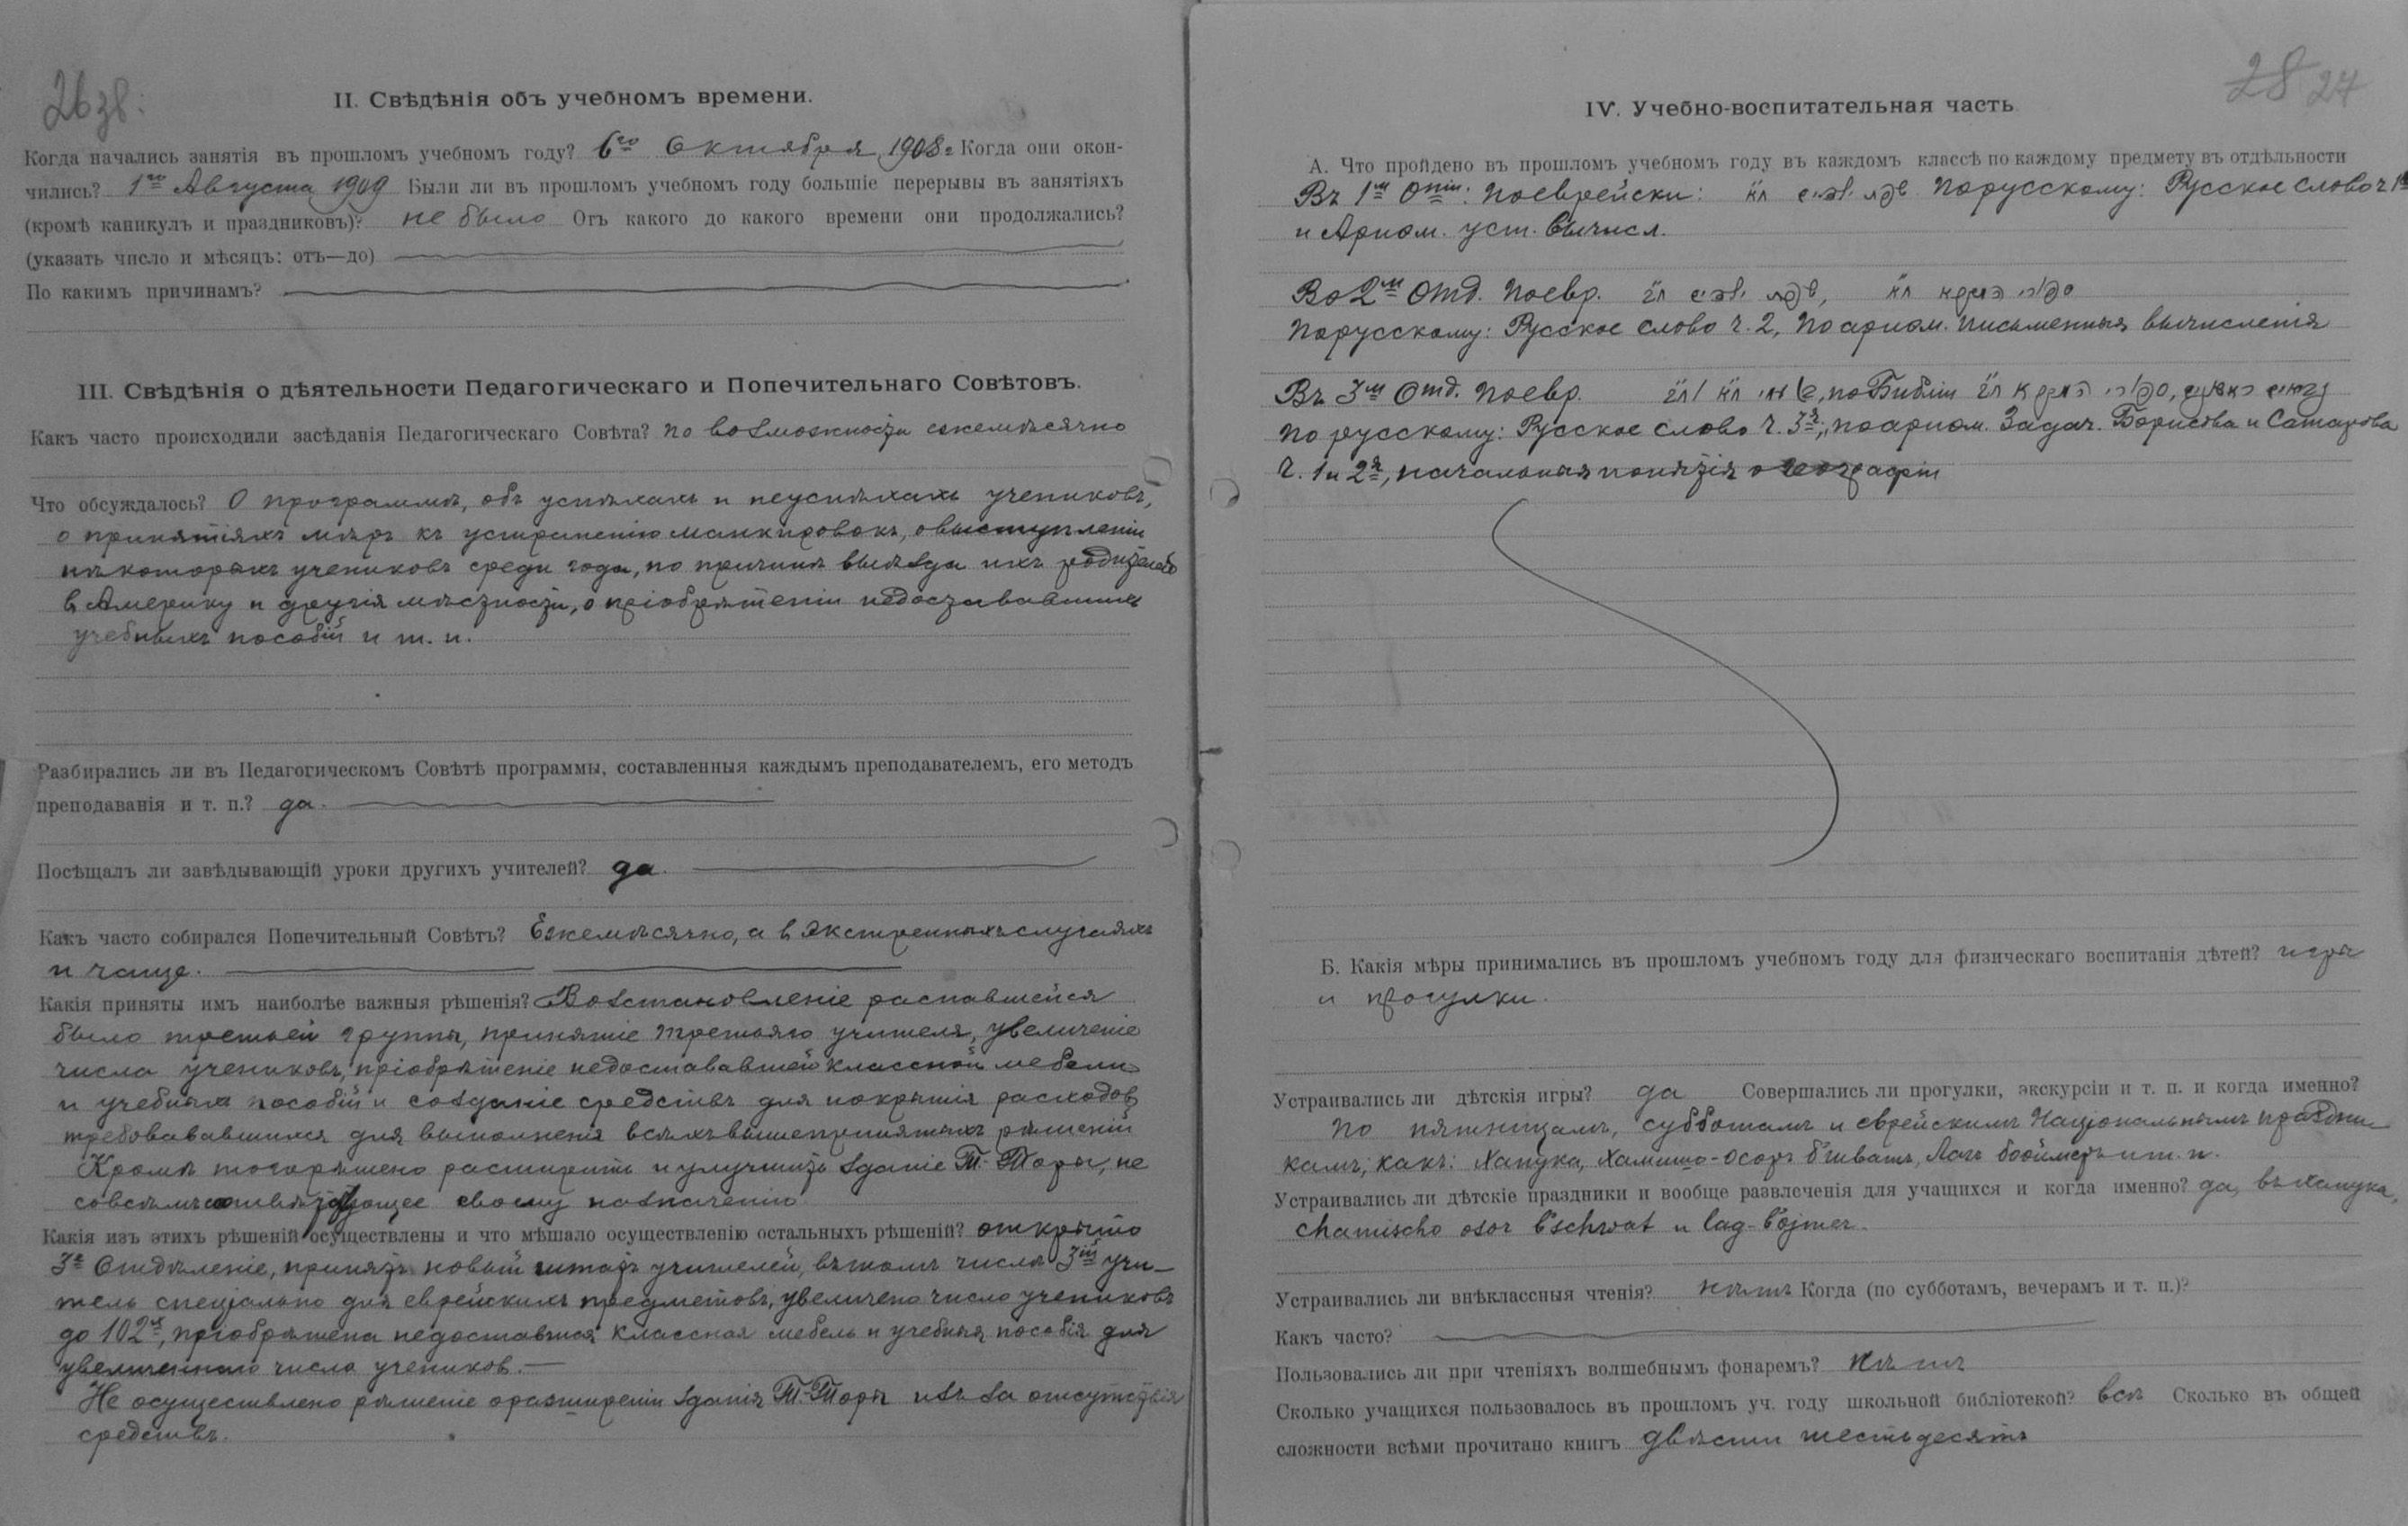 26 зв.
II. Свѣдѣнія объ учебномъ времени.
Когда начались занятія въ прошломъ учебномъ году? 6го Октября 1908г Когда они окон-
чились? 1го Августа 1909 Были ли въ прошломъ учебномъ году большіе перерывы въ занятіяхъ
(кромѣ каникулъ и праздниковъ)? не было Отъ какого до какого времени они продолжались?
(указать число и мѣсяцъ: отъ—до)
По какимъ причинамъ?
III. Свѣдѣнія о дѣятельности Педагогическаго и Попечительнаго Совѣтовъ.
Какъ часто происходили засѣданія Педагогическаго Совѣта? по возможности ежемѣсячно
Что обсуждалось? О программѣ, объ успѣхахъ и неуспѣхахъ учениковъ,
о принятіяхъ мѣръ къ устраненію манкировокъ, о выступленіи
нѣкоторыхъ учениковъ среди года, по причинѣ выѣзда ихъ родителей
въ Америку и другія мѣстности, о пріобрѣтеніи недостававшихъ
учебныхъ пособій и т. п.
Разбирались ли въ Педагогическомъ Совѣтѣ программы, составленныя каждымъ преподавателемъ, его методъ
преподаванія и т. п.? да.
Посѣщалъ ли завѣдывающій уроки другихъ учителей? да.
Какъ часто собирался Попечительный Совѣтъ? Ежемѣсячно, а в экстренныхъ случаяхъ
и чаще.
Какія приняты имъ наиболѣе важныя рѣшенія? Возстановленіе распавшейся
было третьей группы, принятіе третьяго учителя, увеличеніе
числа учениковъ, пріобрѣтеніе недостававшей классной мебели
и учебныхъ пособій и созданіе средствъ для покрытія расходовъ
требовавшихся для выполненія всѣхъ вышепринятыхъ рѣшеній
Кромѣ того рѣшено расширить и улучшить зданіе Т.-Торы, не
совсѣмъ своему назначенію
Какія изъ этихъ рѣшеній осуществлены и что мѣшало осуществленію остальныхъ рѣшеній? открыто
3е Отдѣленіе, принятъ новый штатъ учителей, въ томъ числѣ 3ій учи-
тель спеціально для еврейскихъ предметовъ, увеличено число учениковъ
до 102х, пріобрѣтена классная мебель и учебныя пособія для
увеличеннаго числа учениковъ.—
Не осуществлено рѣшеніе о разширеніи зданія Т-Торы изъ за отсутствія
средствъ.
28 27
IV. Учебно-воспитательная часть
А. Что пройдено въ прошломъ учебномъ году въ каждомъ классѣ по каждому предмету въ отдѣльности
Въ 1м Отд. поеврейски: порусскому: Русское слово ч 1я
и Ариѳм. уст. вычисл.
Во 2м Отд. поевр.
порусскому: Русское слово ч. 2, по ариѳм. письменныя вычисленія
Въ 3м Отд. поевр. по Библіи
по русскому: Русское слово ч. 3я, по ариѳм. Задач. и
ч. 1 и 2я, начальныя понятія о географіи
Б. Какія мѣры принимались въ прошломъ учебномъ году для физическаго воспитанія дѣтей? игры
и прогулки.
Устраивались ли дѣтскія игры? да Совершались ли прогулки, экскурсіи и т. п. и когда именно?
по пятницамъ, субботамъ и еврейскимъ національнымъ праздни
камъ, какъ: Ханука, Хамишо-Осоръ б'швать, Лагъ боойметъ и т. п.
Устраивались ли дѣтскіе праздники и вообще развлеченія для учащихся и когда именно? да, въ ханука,
chamischo osor b'schwat и lag-b'ojmer.
Устраивались ли внѣклассныя чтенія? нѣтъ Когда (по субботамъ, вечерамъ и т. п.)?
Какъ часто?
Пользовались ли при чтеніяхъ волшебнымъ фонаремъ? нѣтъ
Сколько учащихся пользовалось въ прошломъ уч. году школьной библіотекой? всѣ Сколько въ общей
сложности всѣми прочитано книгъ двѣсти шестьдесятъ